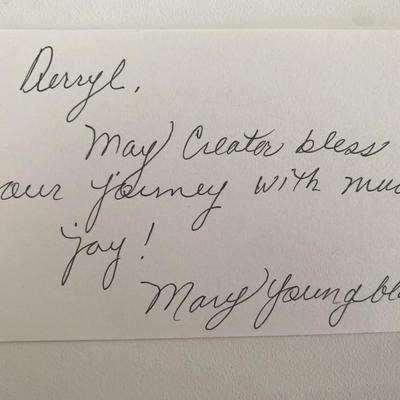 Derryl,
May Creator bless
our journey with muc
joy!
Mary Youngbl